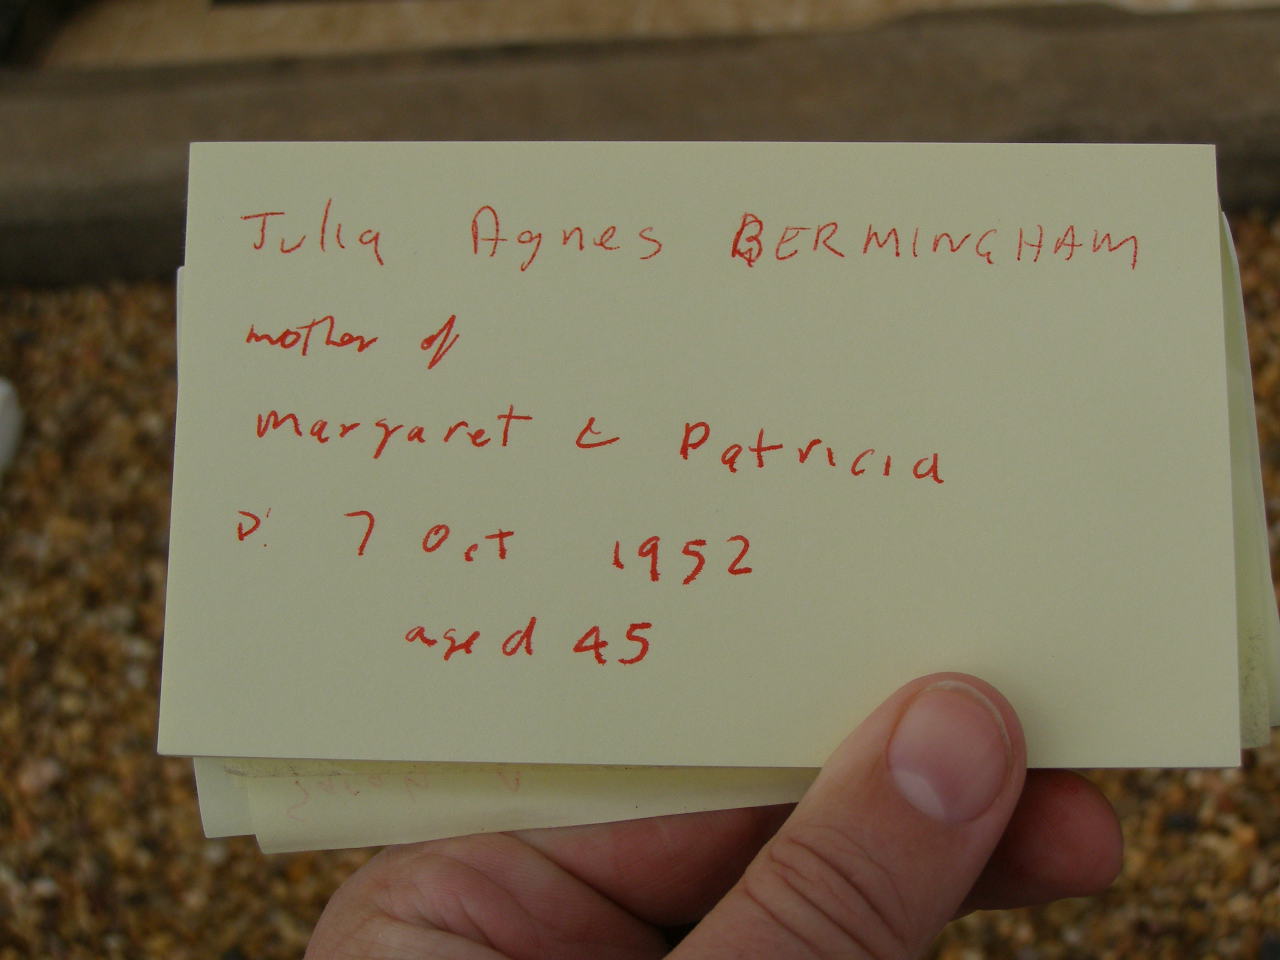 Julia Agnes BERMINGHAM
mother of
Margaret & Patricia
D: 7 Oct 1952
aged 45